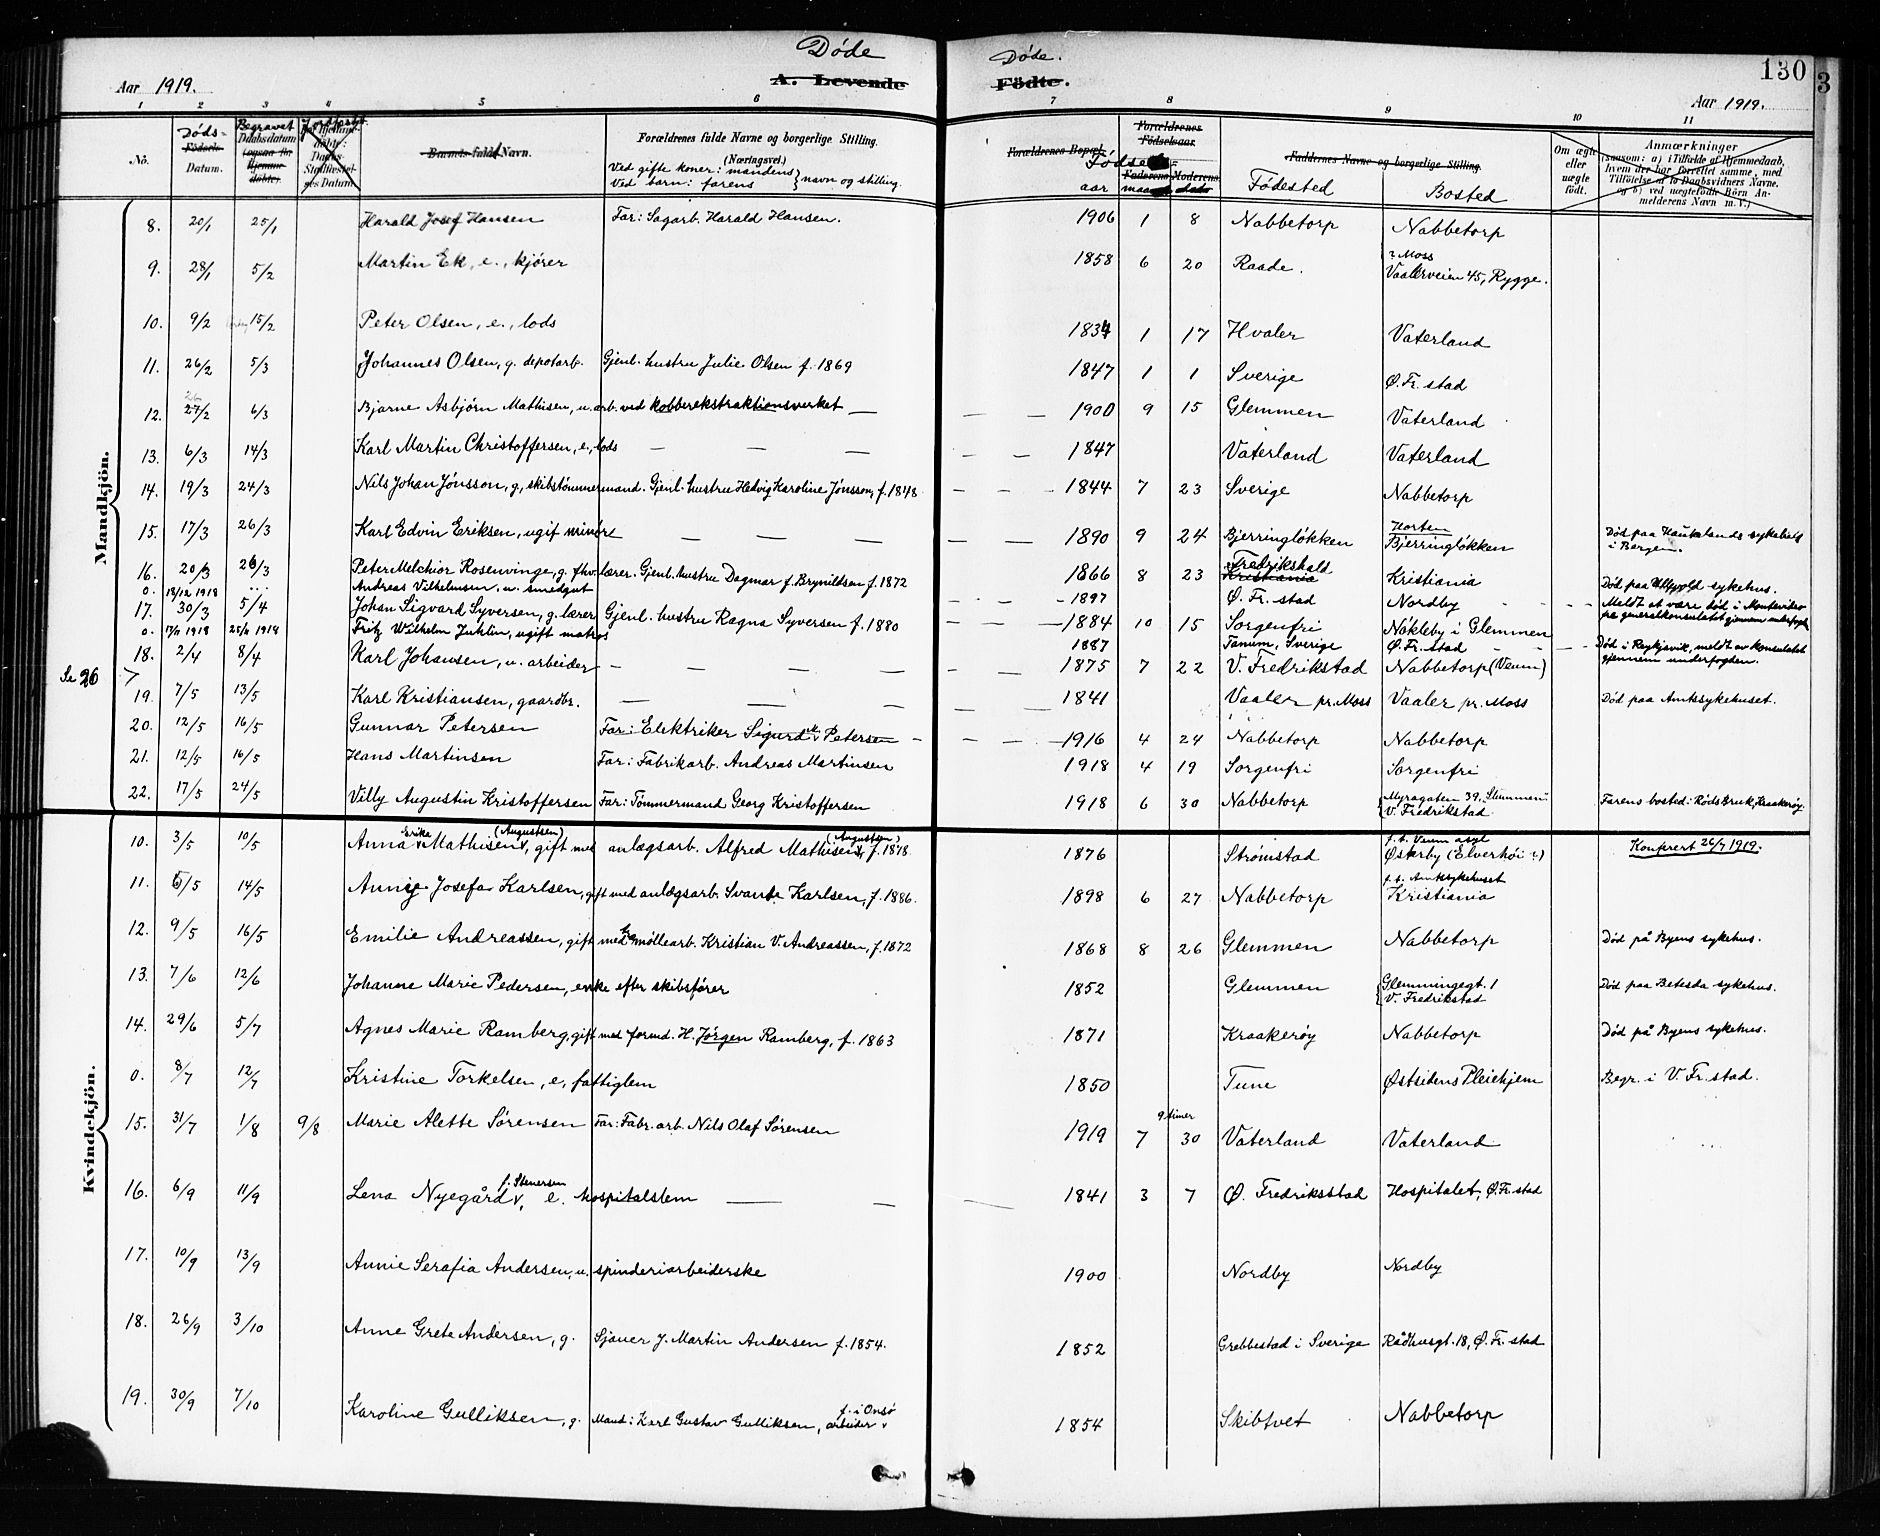 Døde
Døde.
130
3
Aar 1919.
A. Levende
Födte.
Aar 1919.
1 2 3 4 5 6 7 8 9 10 11
No.
Døds-
Födsels-
Datum.
Begravet
Daabsdatum
Barnets fulde Navn.
Forældrenes fulde Navne og borgerlige Stilling.
(Næringsvei.)
Ved gifte koner: mandens
Ved barn: farens } navn og stilling.
Forældrenes Bopæl.
Fødsels-
aar
Forældrenes
Födselsaar.
Faderens Moderens
Faddernes Navne og borgerlige Stilling.
Födested
Bosted
Om ægte
eller
uægte
födt.
Anmærkninger
(saasom: a) i Tilfælde af Hjemmedaab,
hvem der har forrettet samme, med
Tilföielse af to Daabsvidners Navne.
og b) ved uægtefödte Börn An-
melderens Navn m. V.)
Mandkjön.
8. 20/1 25/1 Harald Josef Hansen Far: Sagarb. Harald Hansen. 1906 1 8 Nabbetorp Nabbetorp
9. 28/1 5/2 Martin Ek, e., kjører 1858 6 20 Raade. ? Moss
Vaalerveien 45, Rygge.
10. 9/2 15/2 Peter Olsen, e., lods 1834 1 17 Hvaler Vaterland
11. 26/2 5/3 Johannes Olsen, g. depotarb. Gjenl. hustru Julie Olsen f. 1869 1847 1 1 Sverige Ø. Fr. stad
12. 27/2 6/3 Bjarne Asbjörn Mathisen, u. arb. ved kobberekstraktionsverket — — — 1900 9 15 Glemmen Vaterland
13. 6/3 14/3 Karl Martin Christoffersen, e., lods — — — — — 1847 Vaterland Vaterland
14. 19/3 24/3 Nils Johan Jönsson, g, skibstømmermand. Gjenl. hustru Hedvig Karoline Jönsson, f. 1848 — — — 1844 7 23 Sverige Nabbetorp
15. 17/3 26/3 Karl Edvin Eriksen, ugif minør — — — — — 1890 9 24 Bjerringløkken Horten
Bjerringløkken Død paa Haukelands sykehus
i Bergen.
16. 20/3 26/3 Peter Melchior Rosenvinge, g. fhv. lærer. Gjenl. hustru Dagmar f. Brynildsen f. 1872 1866 8 23 Fredrikshald
Kristiania Kristiania Død paa Ullevold sykehus.
0. 13/12 1918 ... Andreas Vilhelmsen, u. smedgut — — — 1897 Ø. Fr. stad Nordby — — — Meldt at være død i Montevideo
fra generalkonsulatet gjennem underfogd.
17. 30/3 5/4 Johan Sigvard Syversen, g. lærer Gjenl. hustru Ragna Syversen f. 1880 — 1884 10 15 Sorgenfri Nøkleby i Glemmen
0. 17/11 1918 25/11 1918 Fritz Wilhelm Juhlin, ugift matros 1887 Tanum, Sverige Ø. Fr. stad — — — Død i Reykjavik, meldt av konsulatet
gjennem underfogden.
Se 26 >
18. 2/4 8/4 Karl Johansen, u. arbeider — — — — — 1875 7 22 V. Fredrikstad Nabbetorp (Veum)
19. 7/5 13/5 Karl Kristiansen, gaardbr. — — — — — 1841 Vaaler pr. Moss Vaaler pr. Moss Død paa Amtssykehuset.
20. 12/5 16/5 Gunnar Petersen Far: Elektriker Sigurd M. Petersen — — — — 1916 4 24 Nabbetorp Nabbetorp
21. 12/5 16/5 Hans Martinsen Far: Fabrikarb. Andreas Martinsen 1918 4 19 Sorgenfri Sorgenfri
22. 17/5 24/5 Villy Augustin Kristoffersen Far: Tømmermand Georg Kristoffersen 1918 6 30 Nabbetorp Myragaten 39, Glemmen
V. Fredrikstad Farens bosted: Røds Bruk, Kraakerøy
Kvindekjön.
10. 3/5 10/5 Anna Erika Mathisen (Augustsen), gift med anlægsarb. Alfred Mathisen (Augustsen), f. 1878. 1876 Strömstad f. t. Veum asyl
Østerby (Elverhöi ?) Konferert 26/7 1919.
11. 5/5 14/5 Annie Josefa Karlsen, gift med anlægsarb. Svante Karlsen, f. 1886. 1898 6 27 Nabbetorp f. t. Amtssykehuset
Kristiania
12. 9/5 16/5 Emilie Andreassen, gift med møllearb. Kristian V. Andreassen, f. 1872 1868 8 26 Glemmen Nabbetorp Død på Byens sykehus.
13. 7/6 12/6 Johanne Marie Pedersen, enke efter skibsfører 1852 Glemmen Glemmingegt. 1
V. Fredrikstad Død paa Betesda sykehus.
14. 29/6 5/7 Agnes Marie Ramberg, gift med formd. H. Jørgen Ramberg, f. 1863 1871 Kraakerøy Nabbetorp Død på Byens sykehus.
0. 8/7 12/7 Kristine Torkelsen, e, fattiglem 1850 Tune Østsidens Pleiehjem Begr. i V. Fr. stad.
15. 31/7 1/8 9/8 Marie Alette Sørensen Far: Fabr. arb. Nils Olaf Sørensen 1919 7 30 9 timer Vaterland Vaterland
16. 6/9 11/9 Lena Nyegård f. Stenersen, e. hospitalslem — — — 1841 3 7 Ø. Fredriksstad Hospitalet, Ø. Fr. stad
17. 10/9 13/9 Annie Serafia Andersen, u. spinderiarbeiderske 1900 Nordby Nordby
18. 26/9 3/10 Anne Grete Andersen, g. Sjauer J. Martin Andersen f. 1854. 1852 Grebbestad i Sverige Rådhusgt. 18, Ø. Fr. stad
19. 30/9 7/10 Karoline Gulliksen, g. Mand: Karl Gustav Gulliksen, arbeider f. i Onsö 1854 Skibtvet Nabbetorp